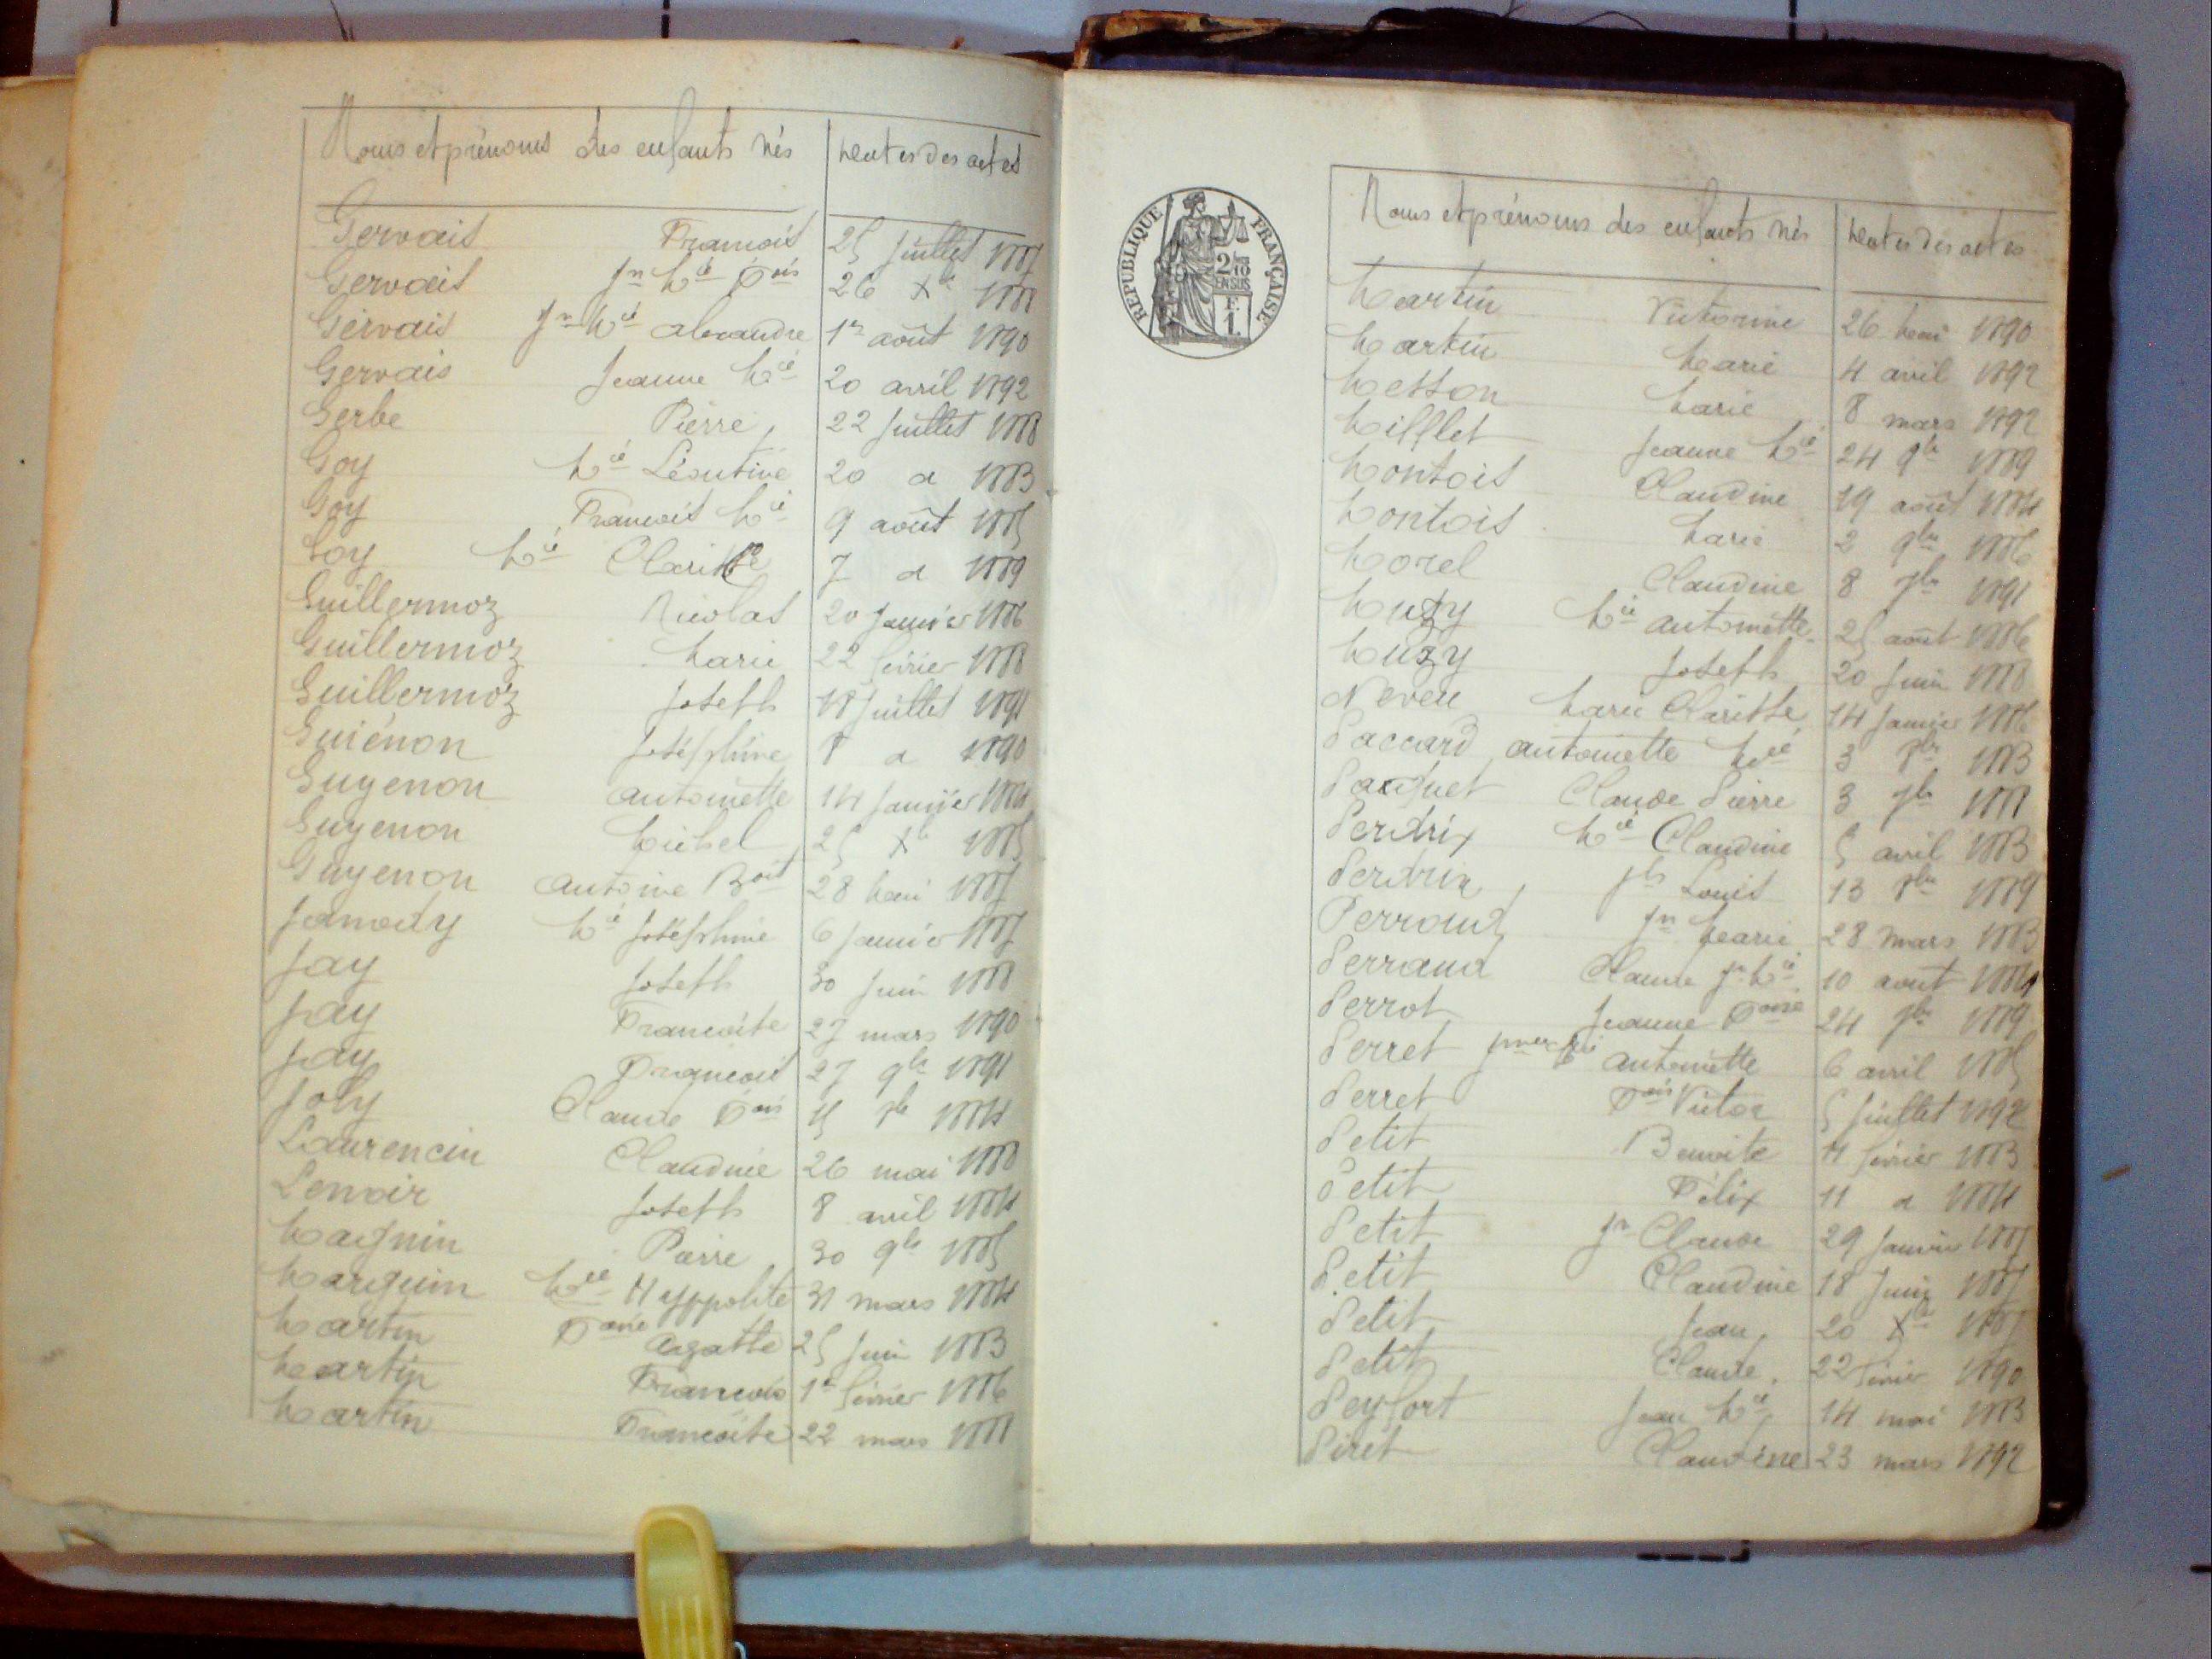 Noms et prénoms des enfants nés Dates des actes
Gervais François 25 Juillet 1887
Gervais Jn Mie Fois 26 Xbre 1888
Gervais Jn Mie Alexandre 1er août 1890
Gervais Jeanne Mie 20 avril 1892
Gerbe Pierre 22 Juillet 1888
Goy Mie Léontine 20 d 1883
Goy François Mie 9 août 1885
Goy Mie Clarisse 7 d 1889
Guillermoz Nicolas 20 Janvier 1886
Guillermoz Marie 22 février 1888
Guillermoz Joseph 18 Juillet 1891
Guiénon Joséphine 8 d 1890
Guyenon Antoinette 14 Janvier 1884
Guyenon Michel 25 Xbre 1885
Guyenon Antoine Boit 28 Mai 1887
Janody Mie Joséphine 6 Janvier 1887
Jay Joseph 30 Juin 1888
Jay Françoise 27 mars 1890
Jay François 27 9bre 1891
Joly Claude Fois 8bre 1884
Laurencin Claudine 26 mai 1888
Lenoir Joseph 8 avril 1884
Magnin Pierre 30 9bre 1885
Marguin Mie Hyppolite 31 mars 1884
Martin Foise Agathe 25 Juin 1883
Martin François 1er février 1886
Martin Françoise 22 mars 1888
REPUBLIQUE FRANÇAISE
2/10
EN SUS
F.
1.
Noms et prénoms des enfants nés Dates des actes
Martin Victorine 26 Mai 1890
Martin Marie 4 avril 1892
Messon Marie 8 mars 1892
Milllet Jeanne Mie 24 9bre 1889
Montois Claudine 19 août 1884
Montois Marie 2 9bre 1886
Morel Claudine 8 7bre 1891
Muzy Mie Antoinette 25 août 1886
Muzy Joseph 20 Juin 1888
Neveu Marie Clarisse 14 Janvier 1886
Paccard Antoinette Mie 3 8bre 1883
Paquet Claude Pierre 3 7bre 1888
Perdrix Mie Claudine 5 avril 1883
Perdrix Jh Louis 13 8bre 1889
Perraud Jn Marie 28 mars 1883
Perraud Claude Jn Mie 10 août 1884
Perrot Jeanne Foise 24 7bre 1889
Perret Antoinette 6 avril 1885
Perret Fois Victor 5 Juillet 1892
Petit Benoite 11 février 1883
Petit Félix 11 d 1884
Petit Jn Claude 29 Janvier 1887
Petit Claudine 18 Juin 1887
Petit Jean 20 Xbre 1887
Petit Claude 22 février 1890
Peyfort Jean Mie 14 mai 1883
Piret Claudine 23 mars 1892